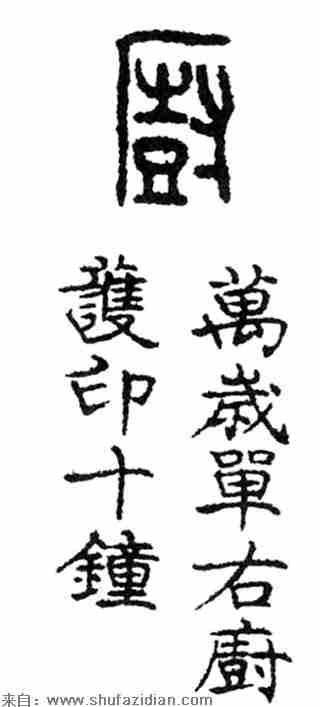 廚
萬歲單右廚
護印十鐘
来自：www.shufazidian.com